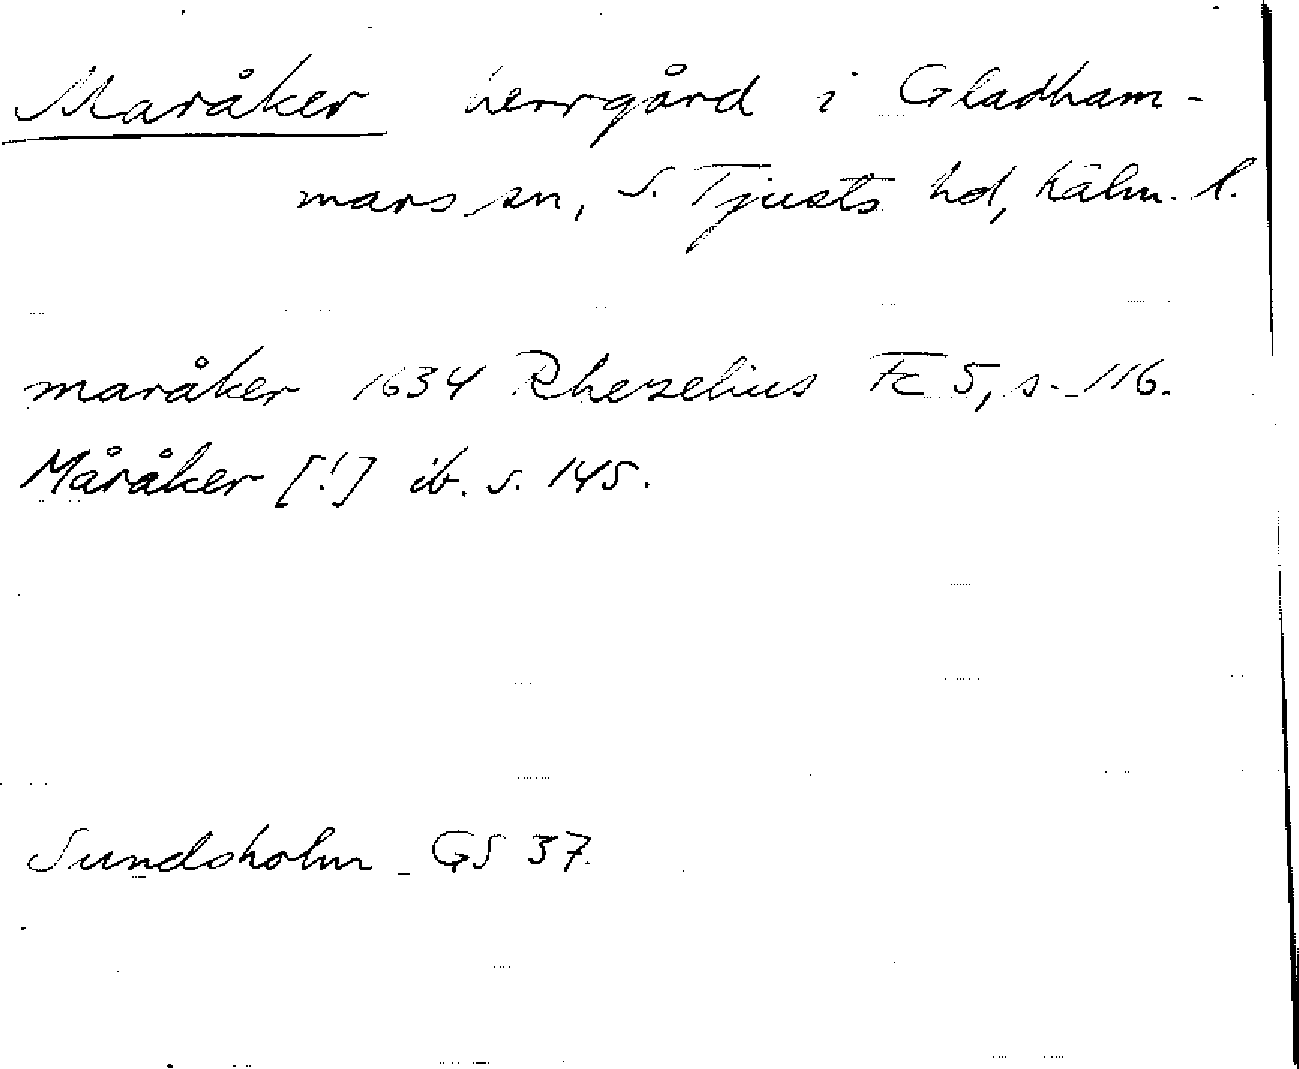 Maråker herrgård i Gladham-
mars sn, S. Tjusts hd, Kalm. l.
maråker 1634 Rhezelius Fc 5, s. 116.
Måråker [!] ib. s. 145.
Sundsholm GS 37